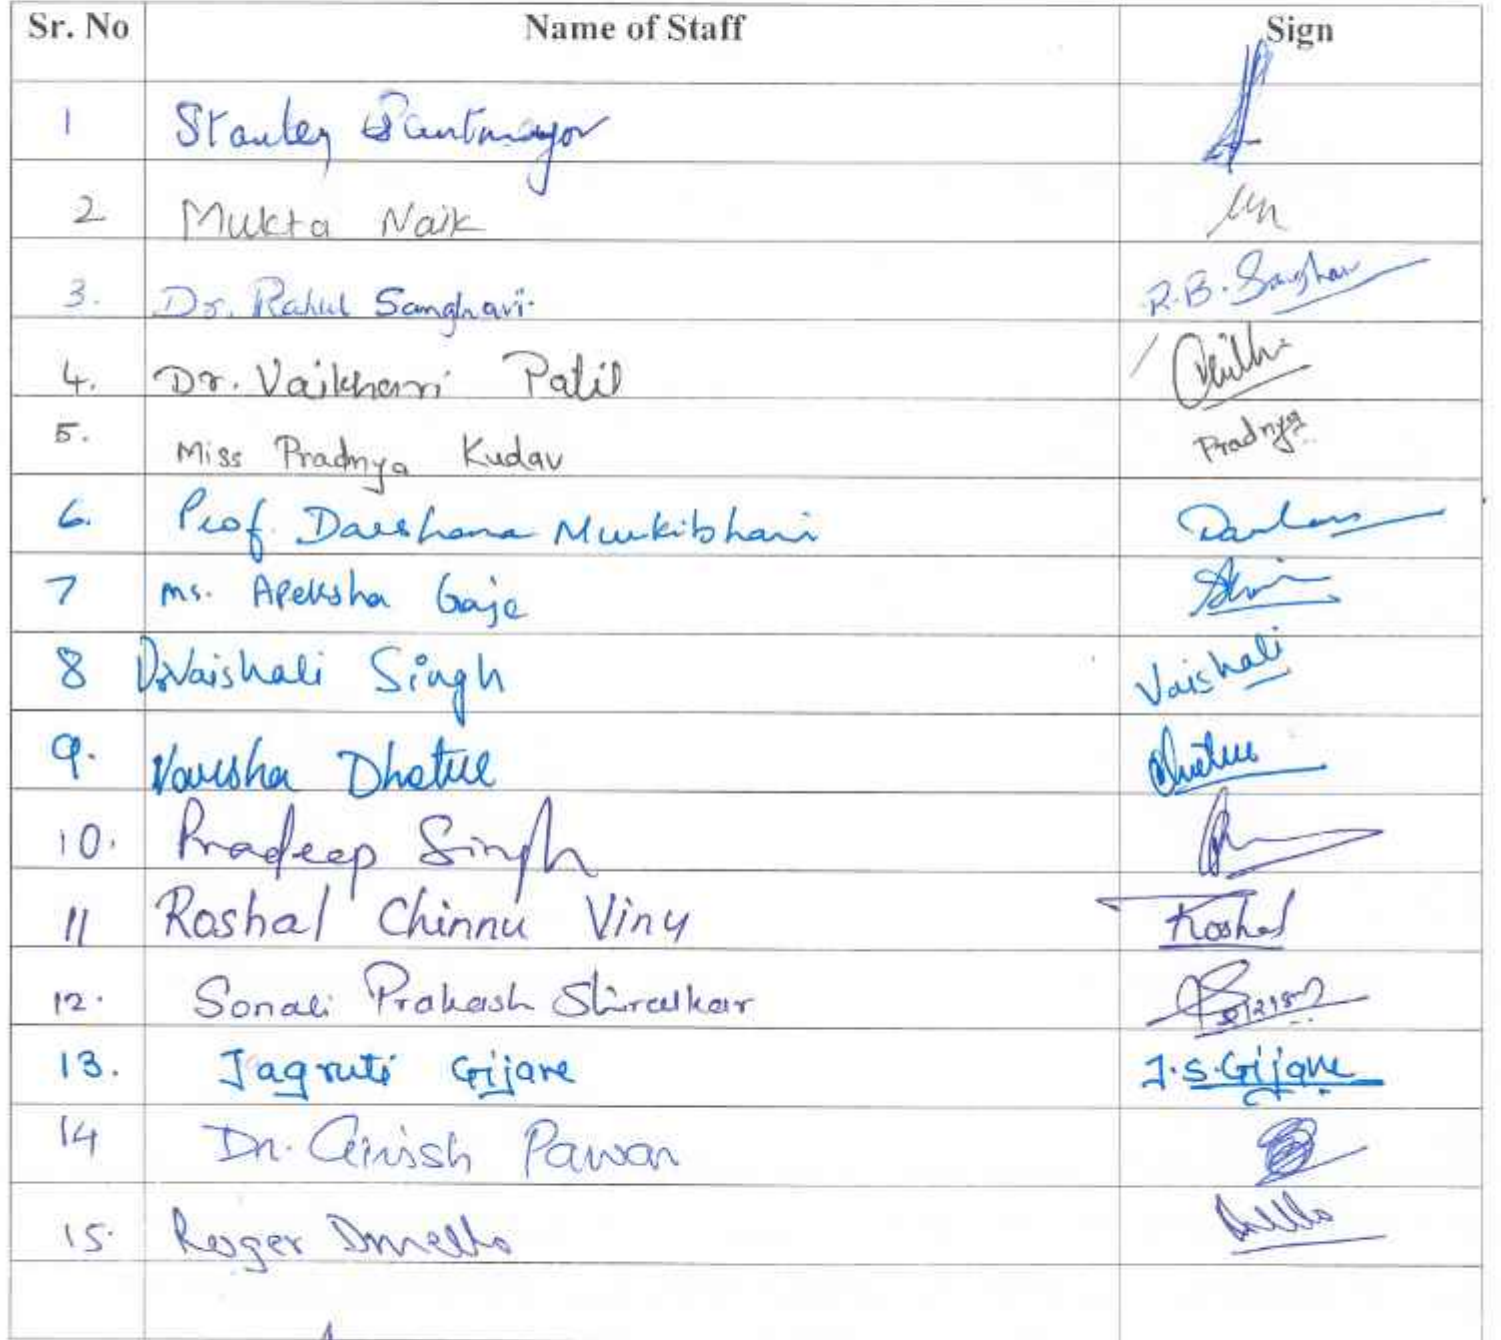 Sr. No Name of Staff Sign
1 Stanley
2 Mukta Naik
3. Dr. Rahul Sanghavi. R.B.
4. Dr. Vaikhari Patil
5. Miss Pradnya Kudav Pradnya
6. Prof. Darshana Murkibhavi
7 Ms. Apeksha Gaje
8 Dr Vaishali Singh Vaishali
9. Varsha Dhatre
10. Pradeep Singh
11 Roshal Chinnu Vinu Roshal
12. Sonali Prakash Shiralkar
13. Jagruti Gijare J.S.Gijare
14 Dr. Girish Pawar
15. Roger Dmello